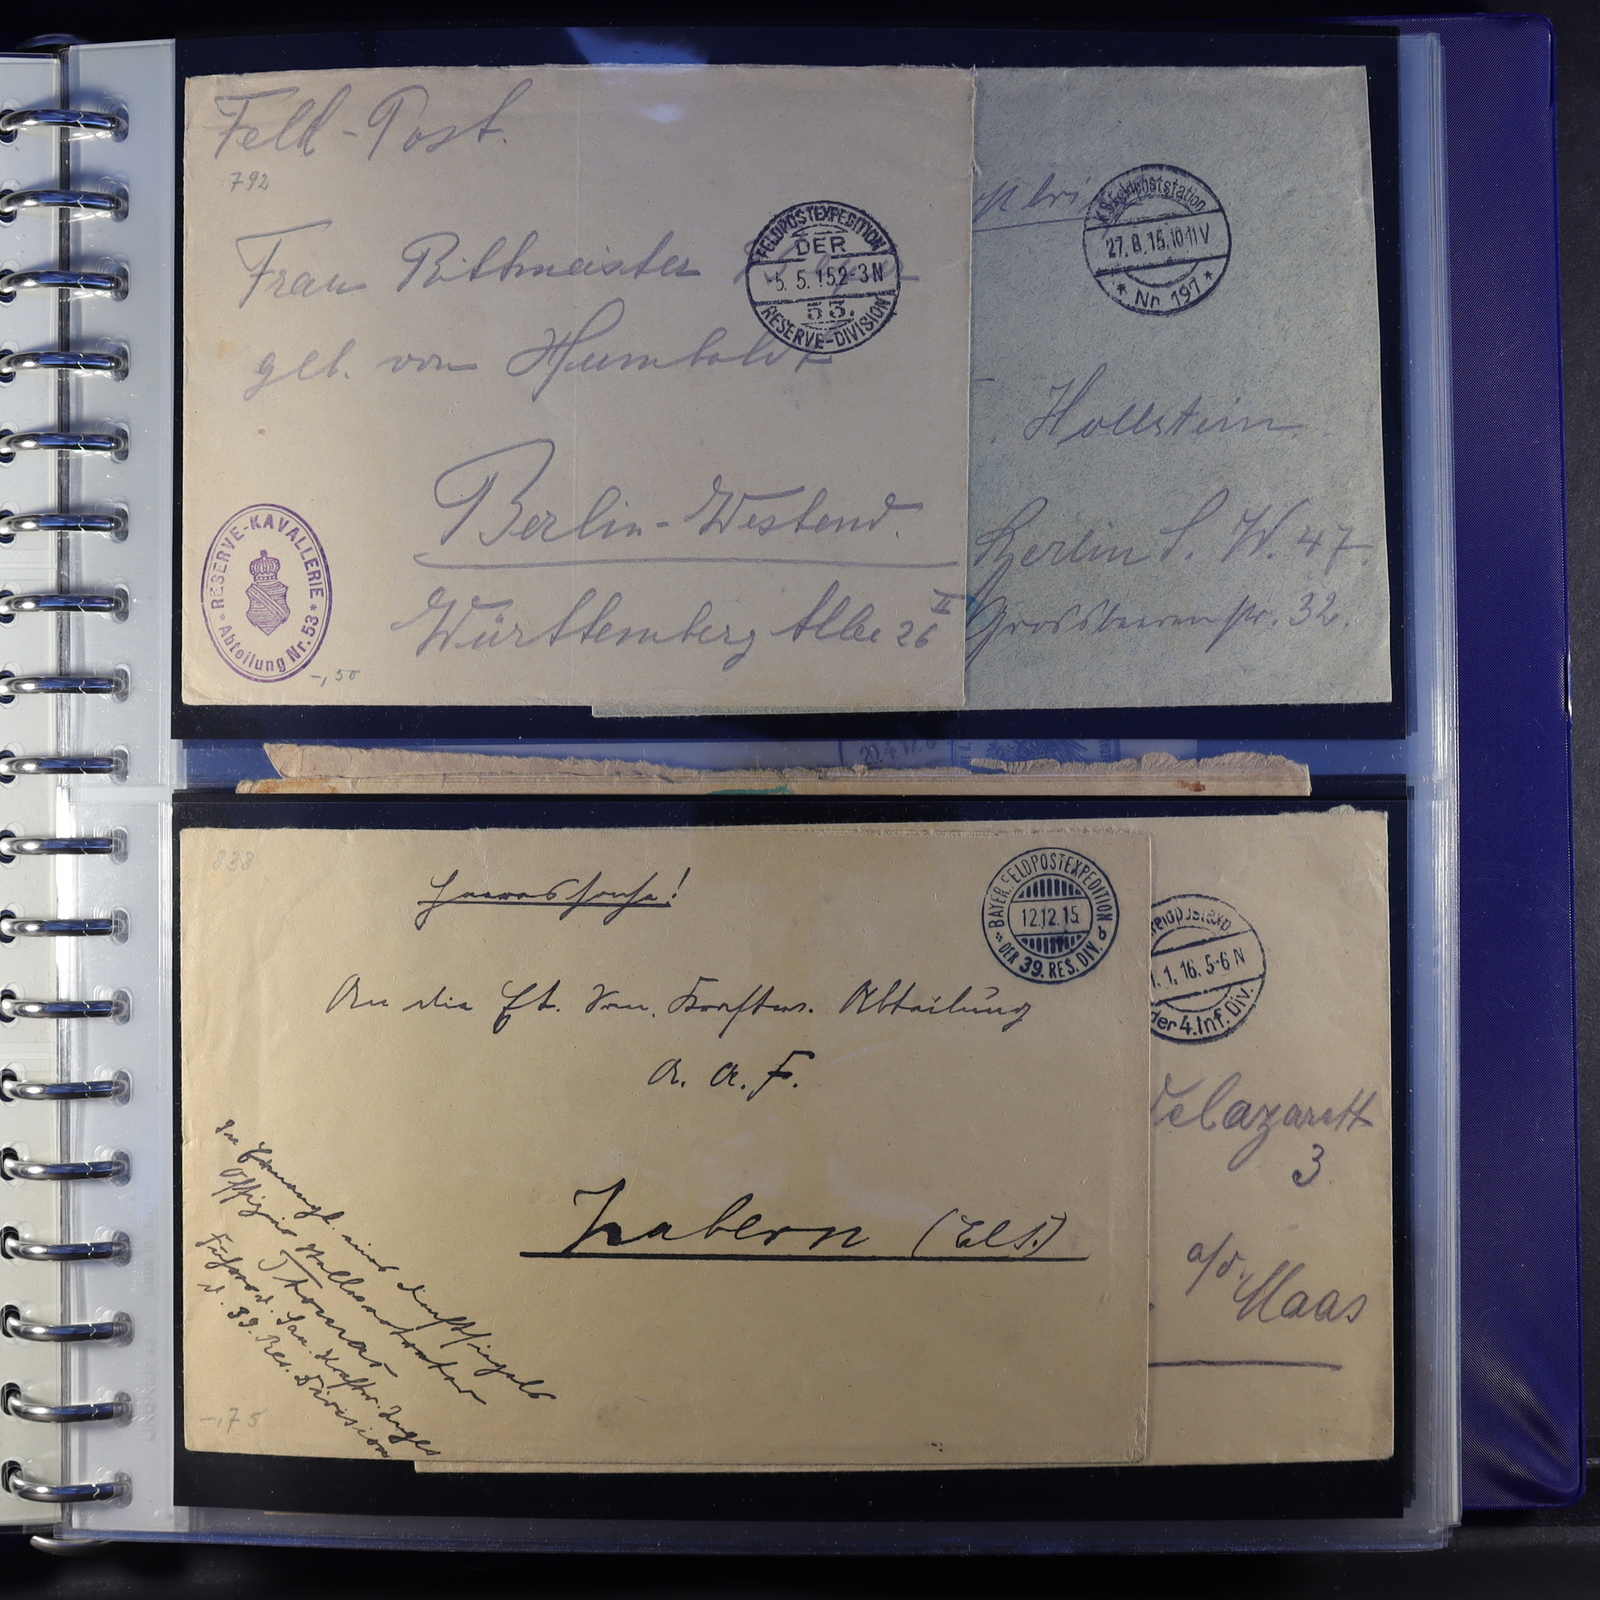 Feld-Post.
792
Frau Rittmeister
geb. von Humboldt
Berlin-Westend.
Württemberg Allee 26 II
FELDPOSTEXPEDITION
DER
-5. 5. 15 2-3 N
53.
RESERVE-DIVISION
RESERVE-KAVALLERIE
Abteilung Nr. 53
-,50
K.D. Feldpoststation
27. 8. 15. 10-11 V
* Nr. 191 *
Hollstein
Berlin S. W. 47.
Grossbeerenstr. 32.
838
Heeressache!
BAYER. FELDPOSTEXPEDITION
12.12.15
DER 39. RES. DIV.
An die Et. Kraftw. Abteilung
A. A. F.
Zabern (Els.)
In Ermangl. eines Dienstsiegels
Thomas
d. 39. Res. Division
-,75
Feldpostexp.
1. 1. 16. 5-6 N
der 4. Inf. Div.
lazarett
3
a/d. Maas